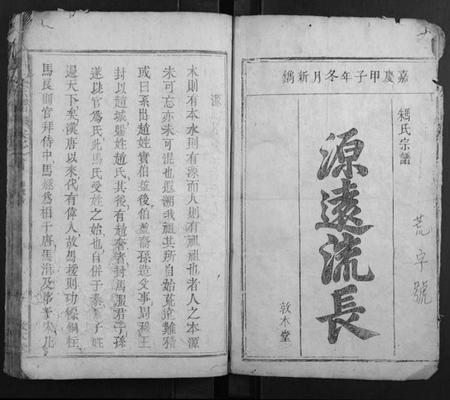 嘉慶甲子年冬月新鐫
氏宗譜
源遠流長
敦本堂
荒字號
源
木則有本水則有源而人則有祖祖也者人之本源
未可忘亦未可混也遐溯我祖其所自始荒遠難稽
或曰系出趙姓實伯益後伯益裔孫造父事周穆王
封以趙城賜姓趙氏其後有趙奢者封馬服君子孫
遂以官為氏此馬氏受姓之始也自併于秦子姓
遍天下矣漢唐以來代有偉人故馬援則功標銅柱
馬良則官拜侍中馬燧為相于唐馬涓及第于宋凡